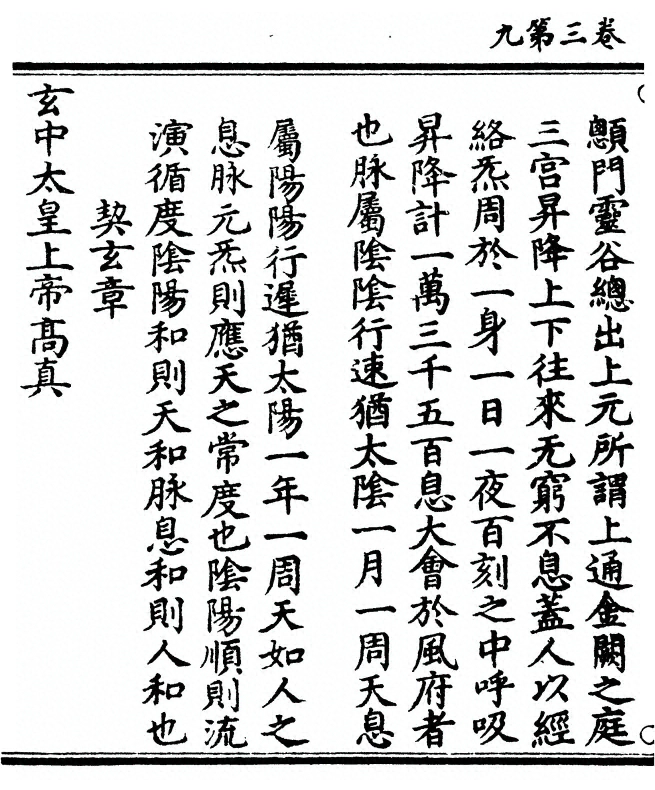 卷三第九
顖門靈谷總出上元所謂上通金闕之庭
三宮昇降上下往來无窮不息蓋人以經
絡炁周於一身一日一夜百刻之中呼吸
昇降計一萬三千五百息大會於風府者
也脉屬陰陰行速猶太陰一月一周天息
屬陽陽行遲猶太陽一年一周天如人之
息脉元炁則應天之常度也陰陽順則流
演循度陰陽和則天和脉息和則人和也
契玄章
玄中太皇上帝高真